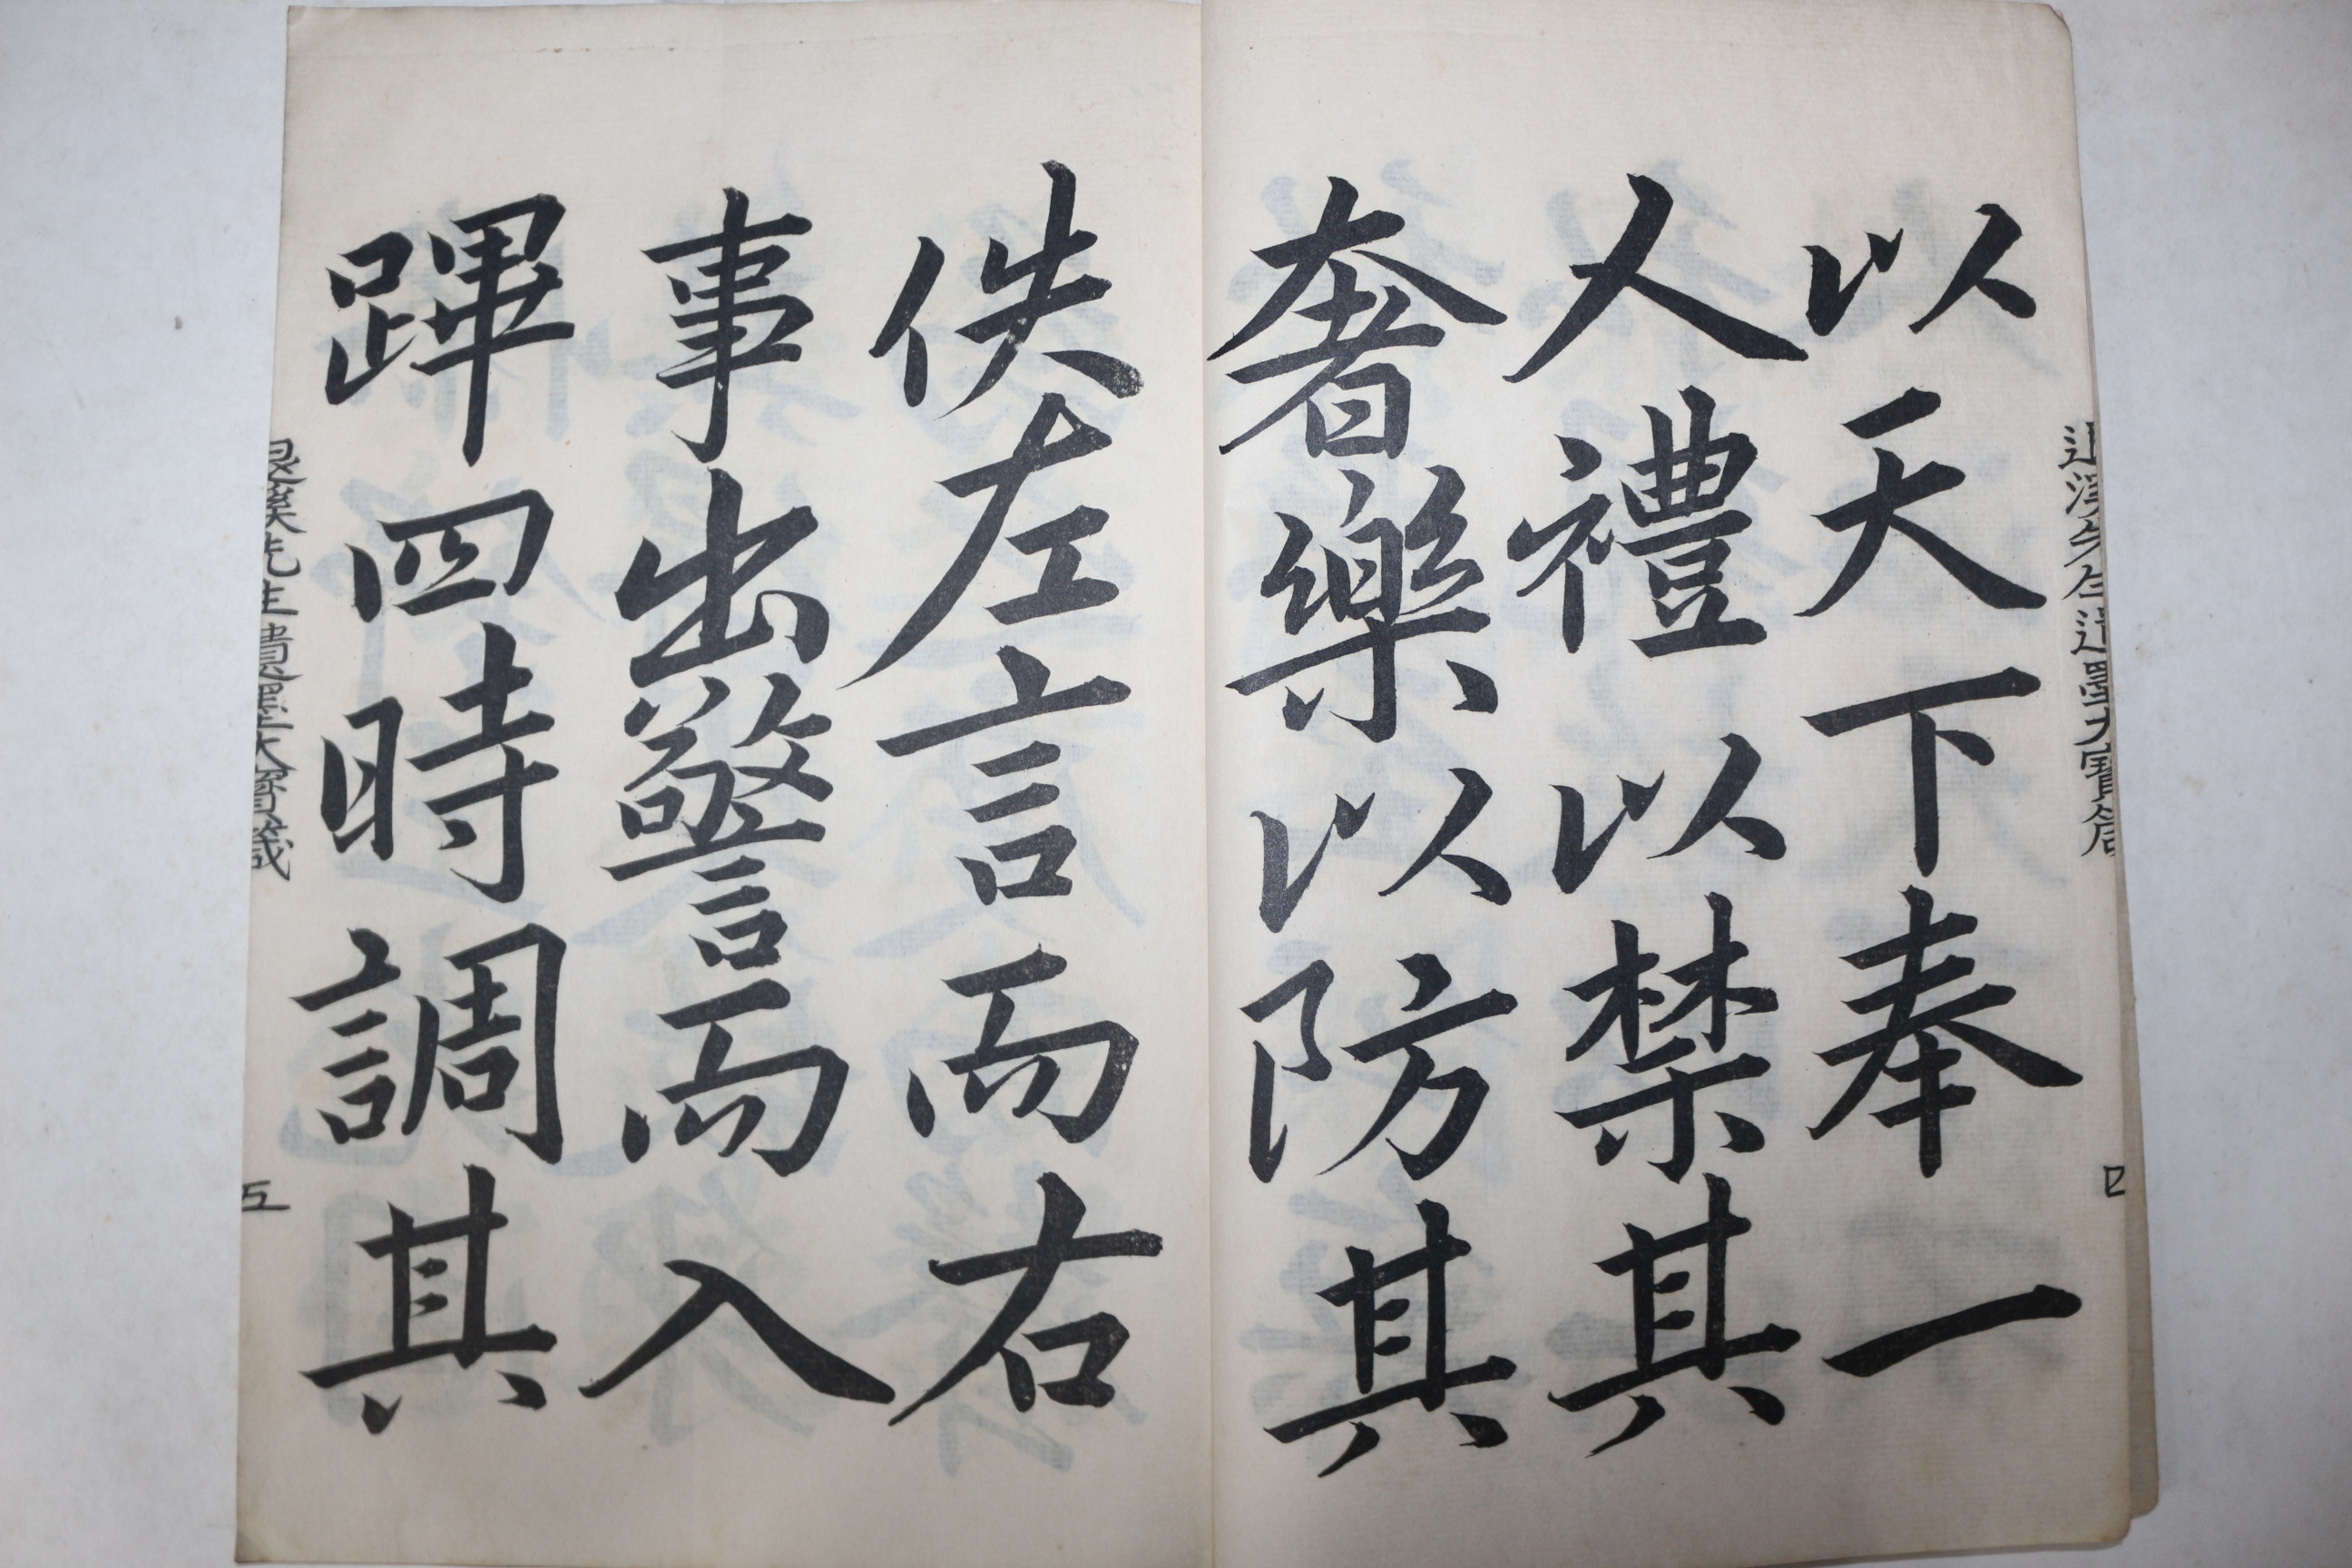 以天下奉一
人禮以禁其
奢樂以防其
佚左言而右
事出警而入
蹕四時調其
退溪先生遺墨大寶箴
四
退溪先生遺墨大寶箴
五